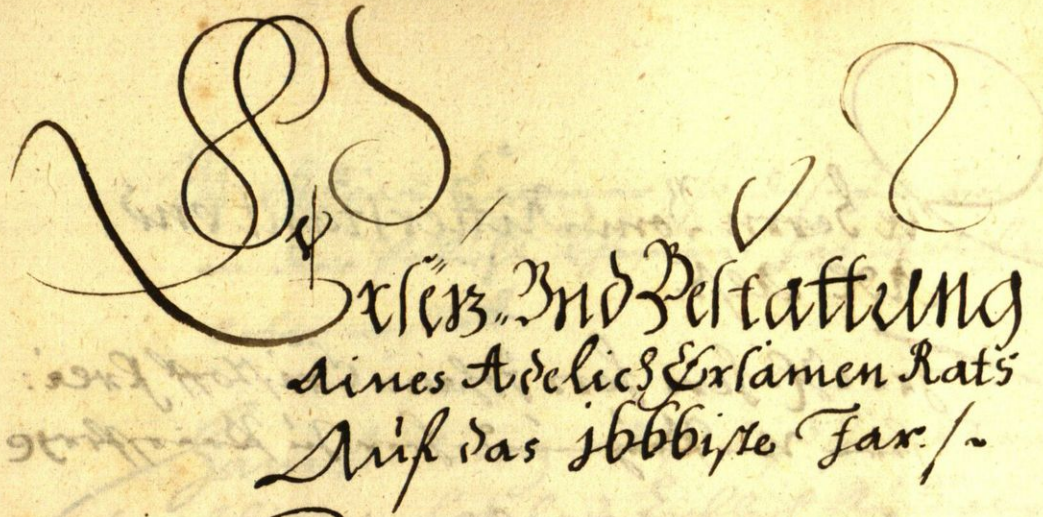 Ersetz= Vnd Bestattung
aines Adelich Ersamen Rats
Auf das 1666iste Jar./.